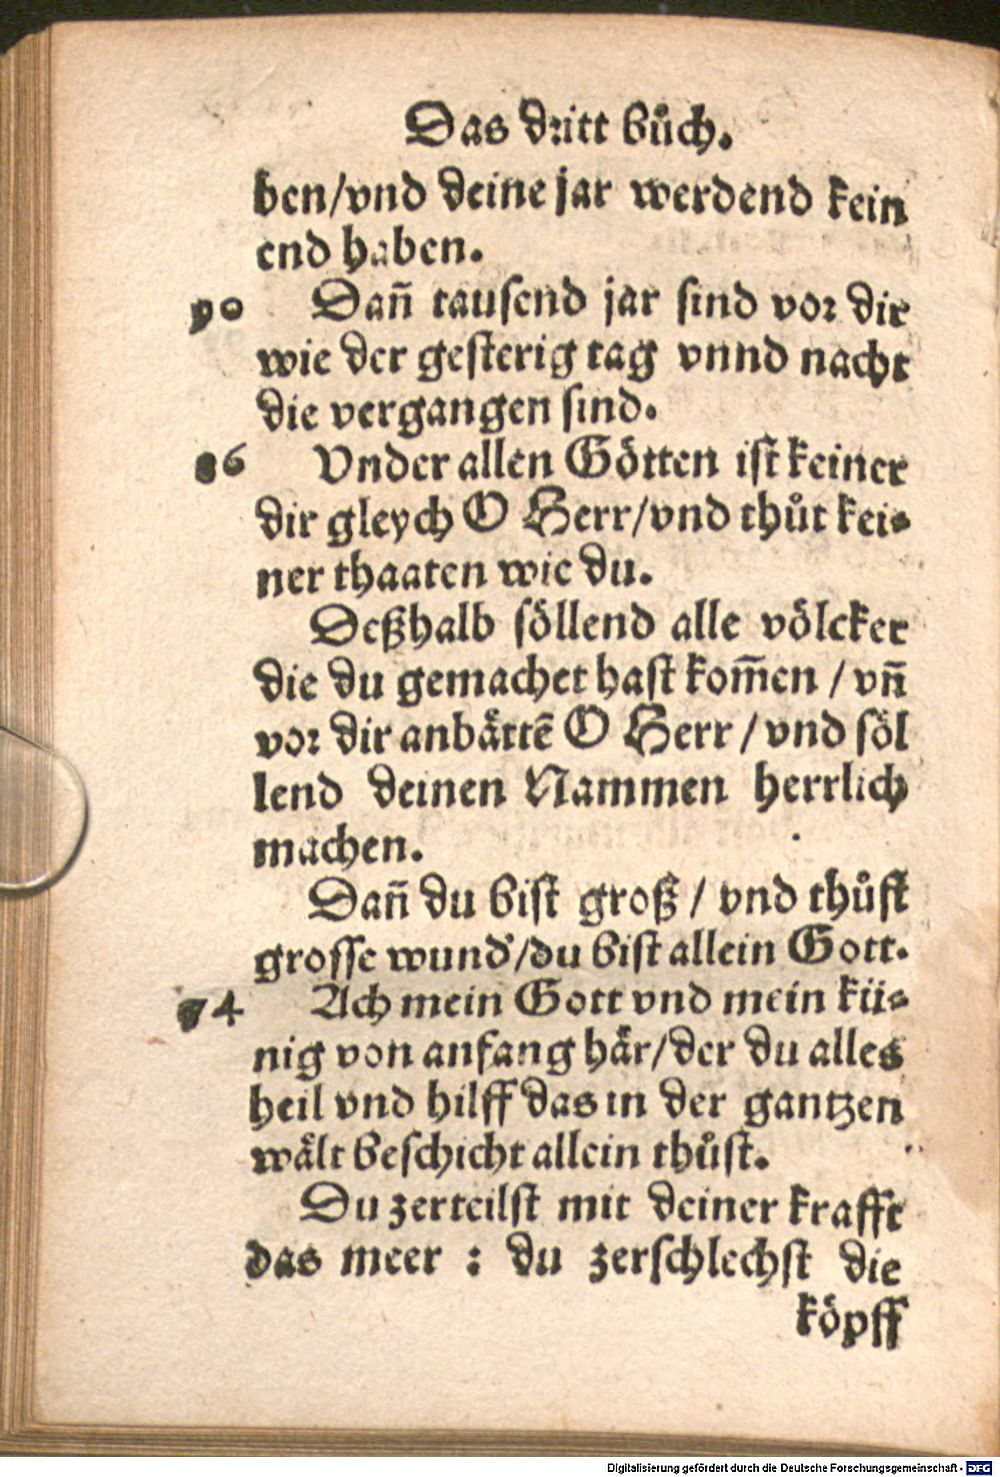 Das dritt bůch.
ben/vnd deine jar werdend kein
end haben.
90 Dañ tausend jar sind vor dir
wie der gesterig tag vnnd nacht
die vergangen sind.
86 Vnder allen Götten ist keiner
dir gleych O Herr/vnd thůt kei-
ner thaaten wie du.
Deßhalb söllend alle völcker
die du gemachet hast kom̃en / vñ
vor dir anbättē O Herr / vnd söl
lend deinen Nammen herrlich
machen.
Dañ du bist groß / vnd thůst
grosse wund'/du bist allein Gott.
74 Ach mein Gott vnd mein kü-
nig von anfang här/der du alles
heil vnd hilff das in der gantzen
wält beschicht allein thůst.
Du zerteilst mit deiner krafft
das meer : du zerschlechst die
köpff
Digitalisierung gefördert durch die Deutsche Forschungsgemeinschaft - DFG